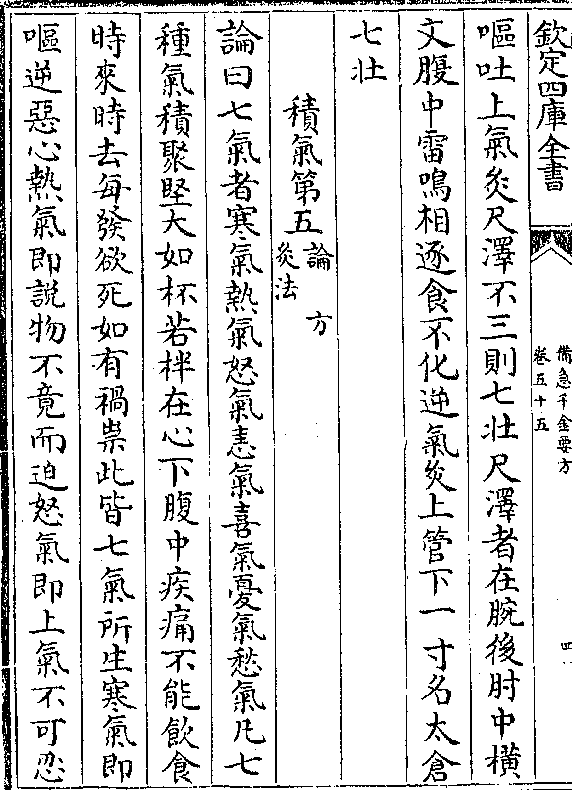 欽定四庫全書
備急千金要方
卷五十五
四
嘔吐上氣灸尺澤不三則七壯尺澤者在腕後肘中橫
文腹中雷鳴相逐食不化逆氣灸上管下一寸名太倉
七壯
積氣第五論 方
灸法
論曰七氣者寒氣熱氣怒氣恚氣喜氣憂氣愁氣凡七
種氣積聚堅大如杯若柈在心下腹中疾痛不能飲食
時來時去每發欲死如有禍祟此皆七氣所生寒氣即
嘔逆惡心熱氣即說物不竟而迫怒氣即上氣不可忍